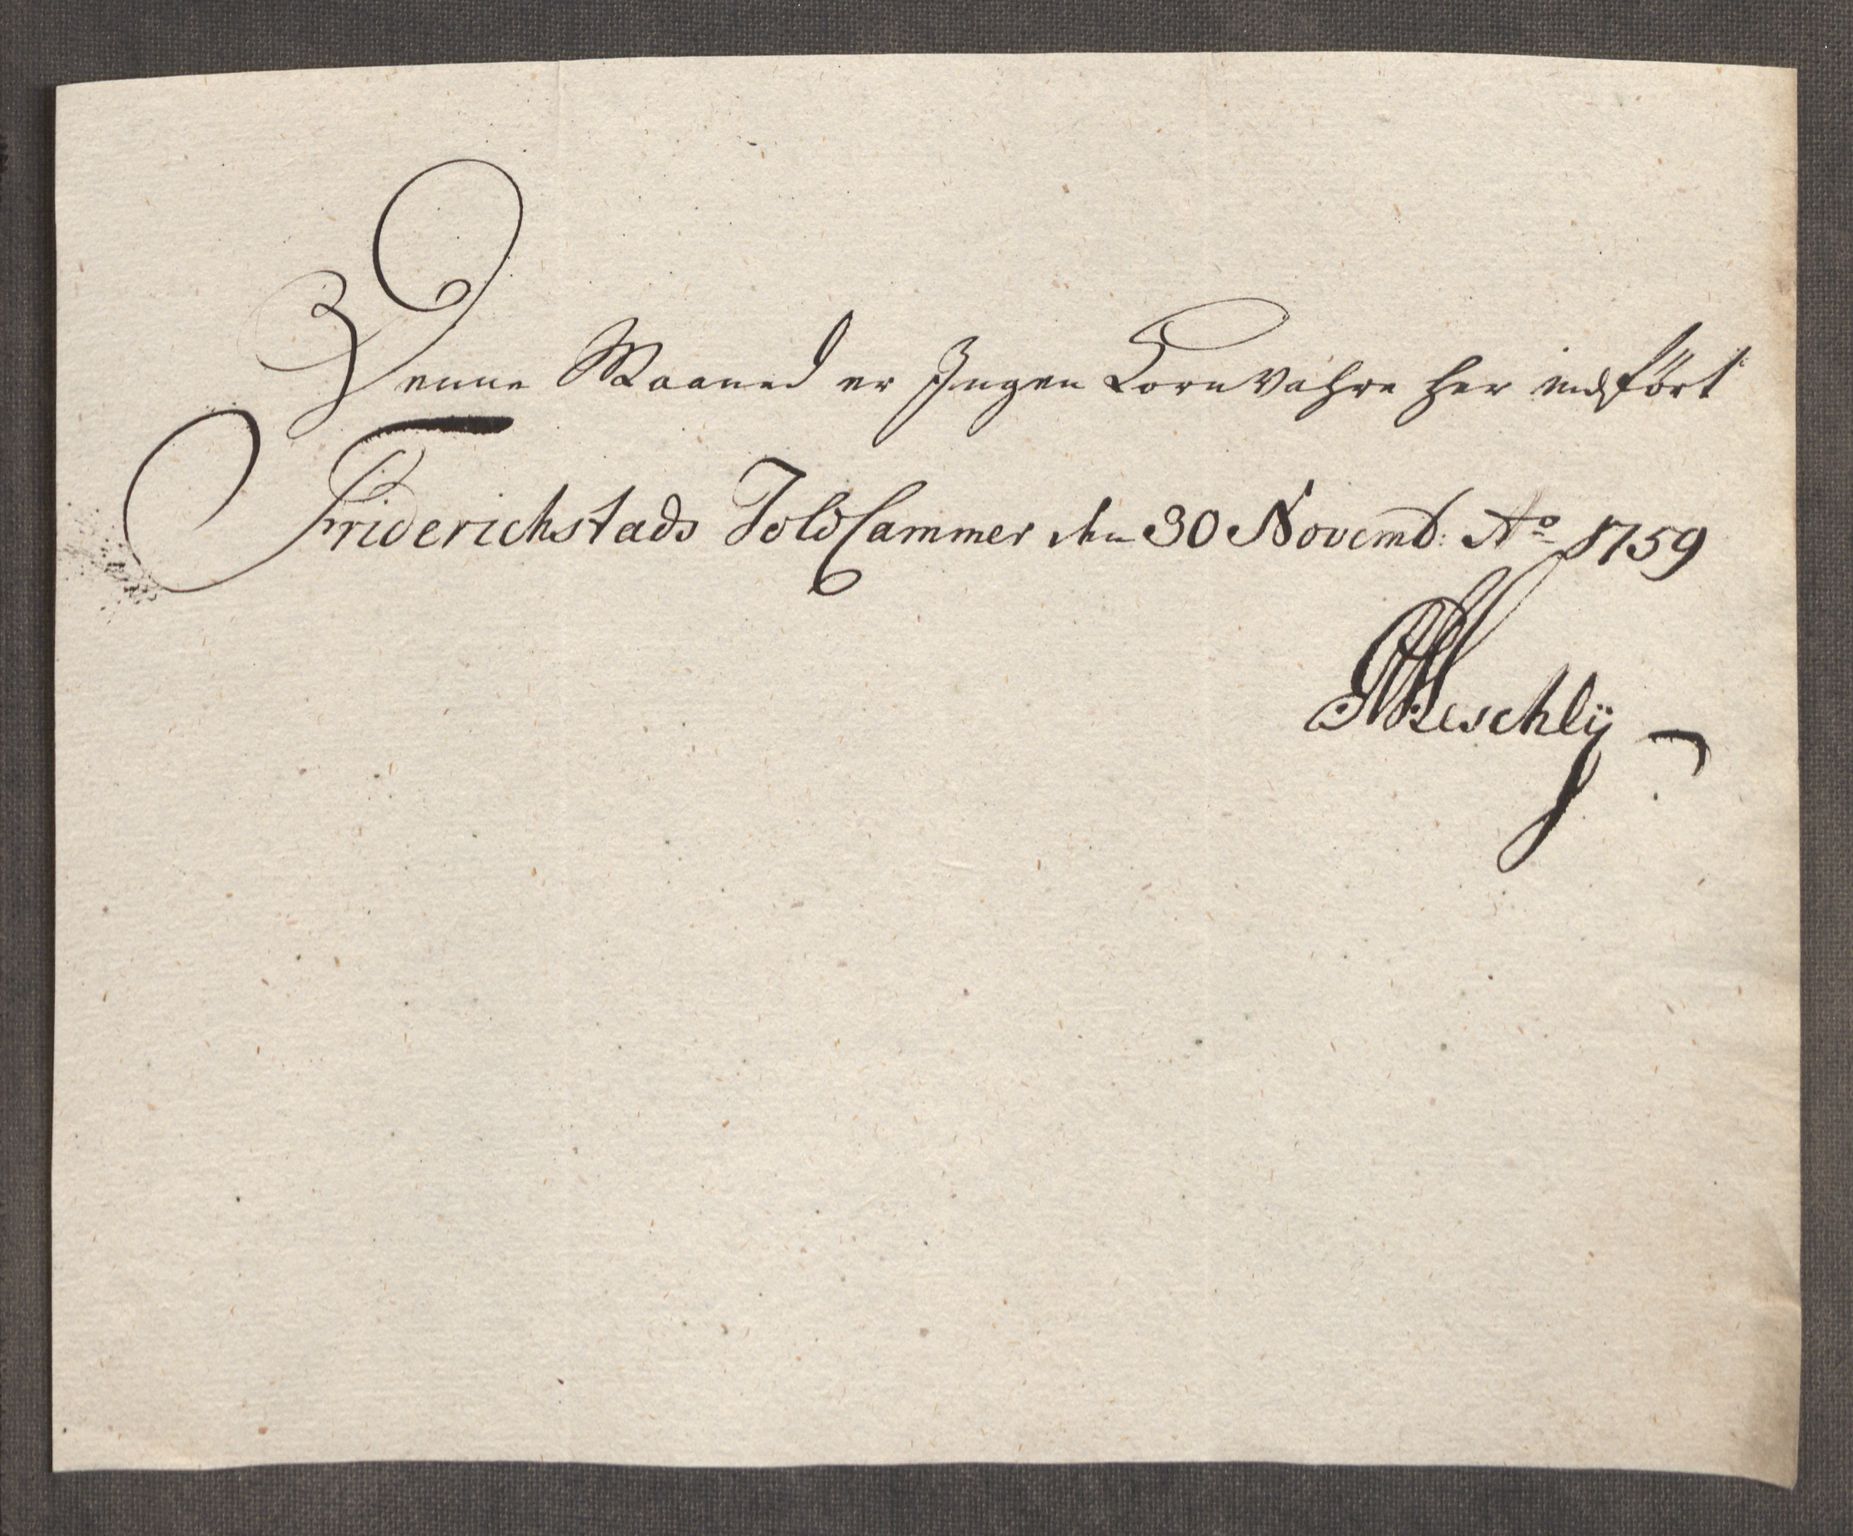 Denne Maaned er Ingen Korn Vahre her indført
Friderichstads Told Cammer den 30 Novemb: Aº 1759